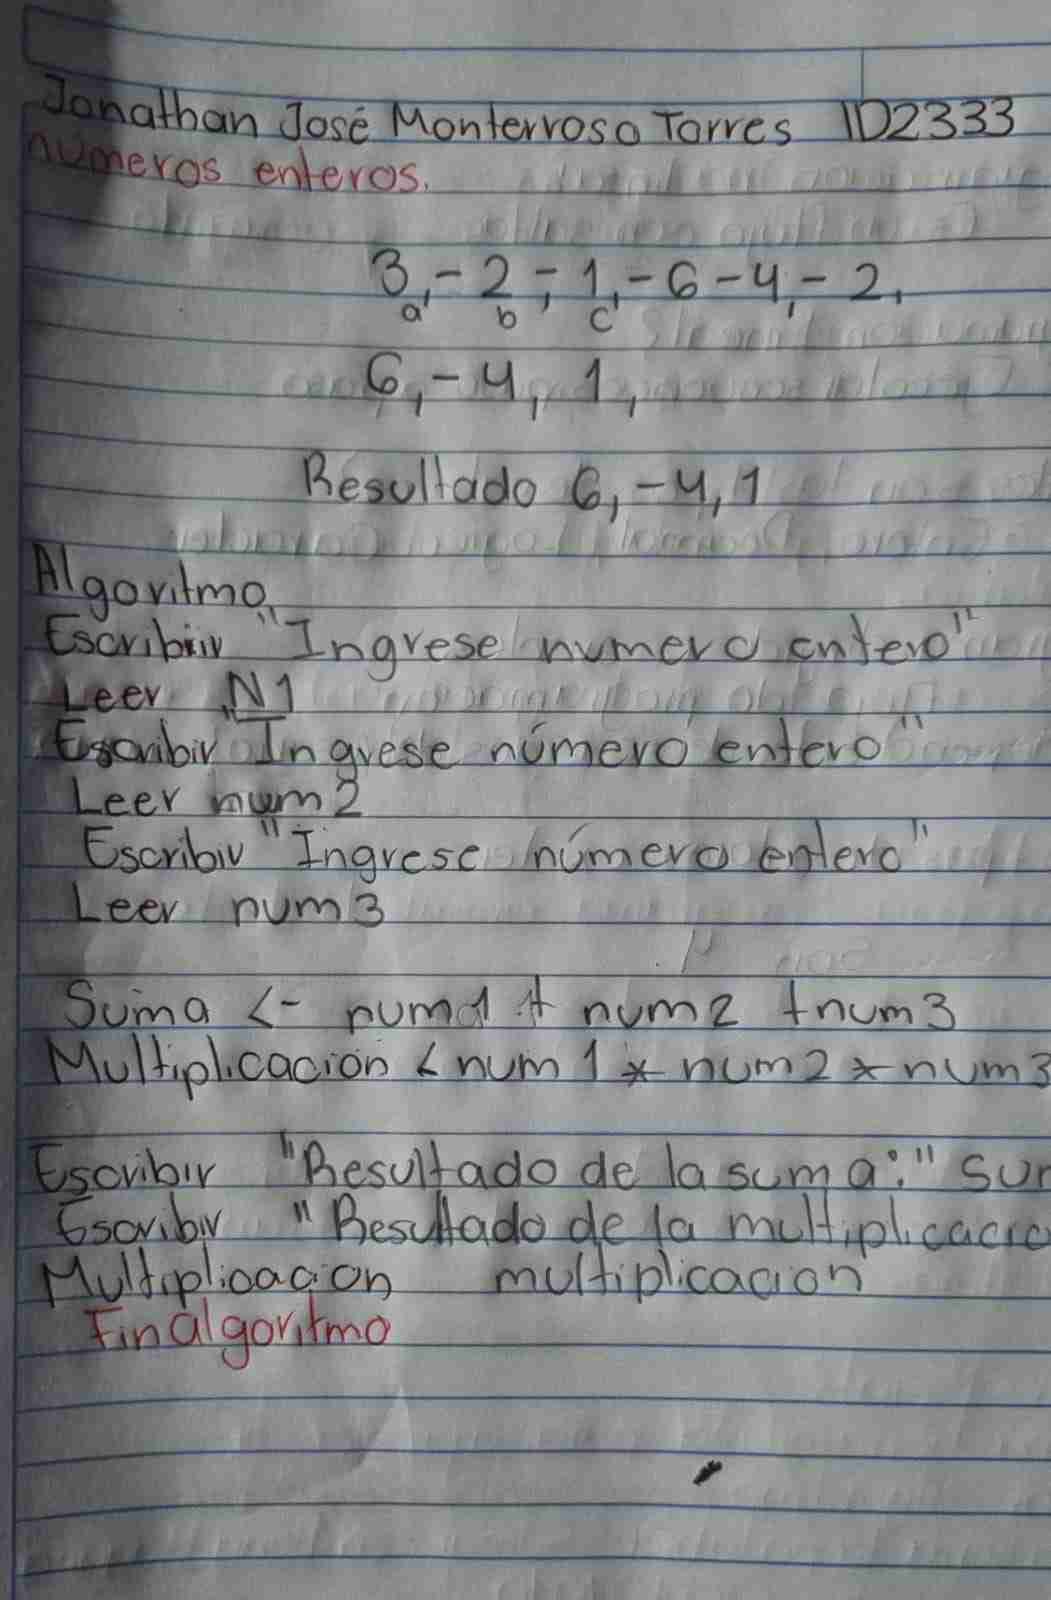 Jonathan José Monterroso Torres ID2333
numeros enteros.
3, - 2, - 1, - 6 - 4, - 2,
a b c
6, - 4, 1,
Resultado 6, -4, 1
Algoritmo
Escribir "Ingrese numero entero"
Leer N1
Escribir "Ingrese número entero"
Leer num2
Escribir "Ingrese número entero"
Leer num3
Suma <- num1 + num2 + num3
Multiplicación < num 1 * num2 * num3
Escribir "Resultado de la suma:" Sum
Escribir "Resultado de la multiplicacio
Multiplicacion multiplicacion
Fin algoritmo